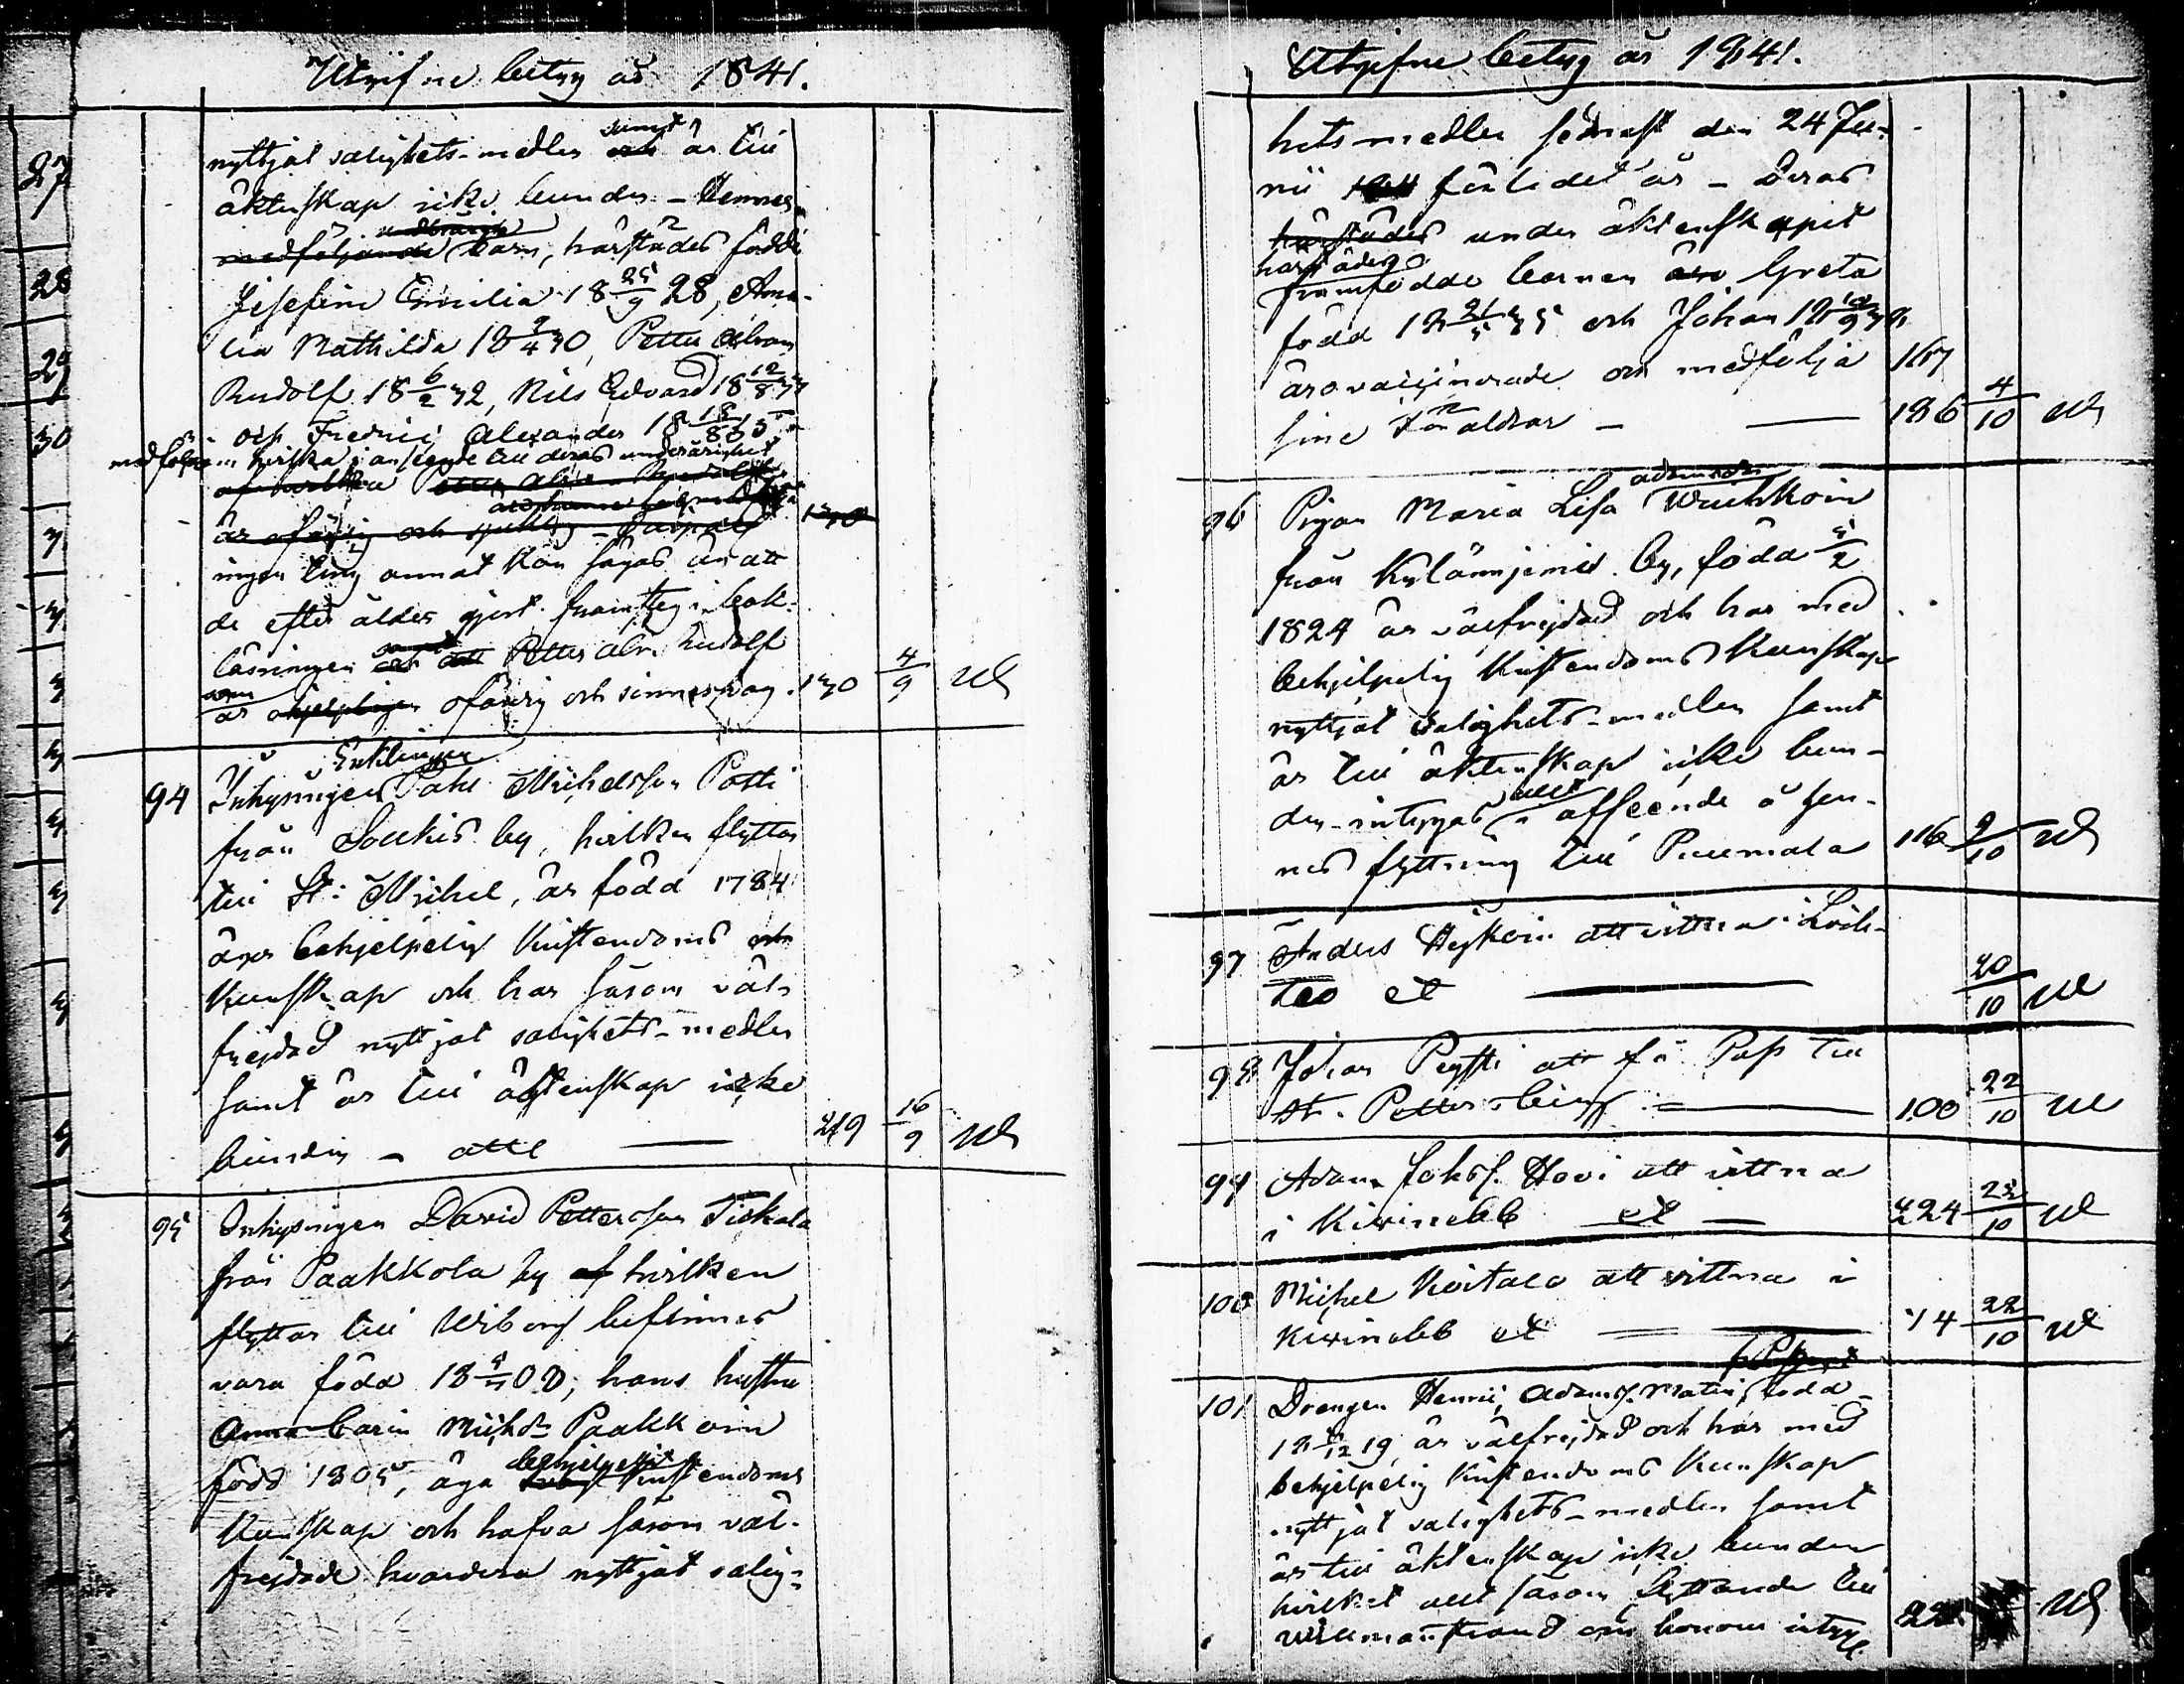 Utgifne betyg år 1841.
nyttjat salighets-medlen samt är till
äktenskap icke bunden - Hennes
medföljande barn, härstädes födde
Josefina Emilia 18 25/9 28, Ama-
lia Mathilda 18 2/4 30, Petter Abram
Rudolf 18 6/2 32, Nils Edvard 18 12/8 33
och Fredric Alexander 18 18/8 35
medfölja hvilka i anseende till deras underårighet
af hvilka
är ofärdig och 130
ingen ting annat kan sägas än att
de efter ålder gjort framsteg i bok-
läsningen samt att Petter Abr. Rudolf
som är ofärdig och sinnessvag. 130 4/9 Ut
Enklingen
94 Inhysingen Påhl Michelsson Potti
från Soukis by, hvilken flyttar
till St: Michel, är född 1784
äger behjelpelig Kristendoms
Kunskap och har såsom väl-
frejdad nyttjat salighets-medlen
samt är till äktenskap icke
bunden - att 219 16/9 Ut
95 Inhysingen David Pettersson Tiskala
från Paakkola by af hvilken
flyttar till Wiborg befinnes
vara född 18 00; hans hustru
Anna Carin Michsdr Paakkoin
född 1805, äga behjelpeligt Kristendoms
Kunskap och hafva såsom väl-
frejdade hvardera nyttjat salig-
27
28
29
30
Utgifne betyg år 1841.
hetsmedlen sednast den 24 Ju-
nii förledet år - Deras
härstädes under äktenskapet
härstädes
framfödde barnen äro Greta
född 18 21/5 35 och Johan 18 9
äro vaccinerade och medfölja 167
sine Föräldrar - 186 4/10 Ut
96 Pigan Maria Lisa Adamsdr Wuihkoin
från Kylänniemis by, född 5/2
1824 är välfrejdad och har med
behjelpelig Kristendoms Kunskap
nyttjat salighets-medlen samt
är till äktenskap icke bun-
den intygas i afseende å hen-
nes flyttning till Puumala 116 9/10 Ut
97 Anders Heikoin att vittna i Koch-
teo et 20/10 Ut
98 Johan Peysti att få Pass till
St. Petersburg 100 22/10 Ut
99 Adam Johsf. Hovi att vittna
i Kivinebb et 224 22/10 Ut
100 Michel Koitalo att vittna i
Kivinebb et 14 22/10 Ut
101 Drengen Henric Adamsf. Matin, född
18 /12 19, är välfrejdad och har med
behjelpelig Kristendoms Kunskap
nyttjat salighets-medlen samt
är till äktenskap icke bunden
hvilket allt såsom flyttande till
Willmanstrand om honom intyg. 22 Ut